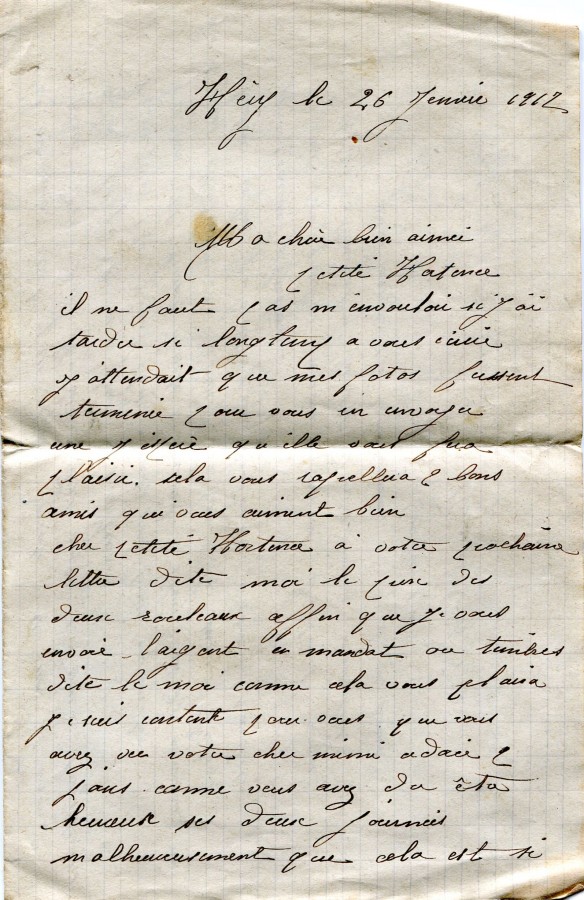 le 26 Jenvie 1917
Ma chère bien aimée
petite Hortence
il ne faut pas m'envouloir si j'ai
tarder si longtemp a vous écrire
j'attendait que mes fotos fussent
terminie pour vous en envoyer
une j'espère qu'elle vous fera
plaisir. sela vous rapellera 2 bons
amis qui vous aiment bien
cher petite Hortence à votre prochaine
lettre dite moi le prix des
deux rouleaux affin que je vous
envoie l'argent en mandat ou timbres
dite le moi comme cela vous plaira
je suis contente pour vous que vous
avez vu votre cher mimi adoré 2
jours comme vous avez du être
heureuse ses deux journeés
malheureusement que cela est si